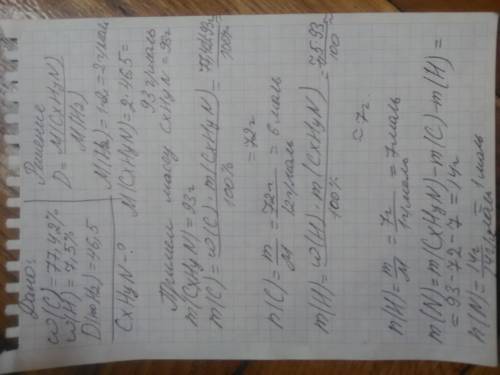 Дано:
ω(C)=77,42%
ω(H)=7,5%
D(поH2)=46,5
CxHyN-?
Решение
D=M(CxHyN)/M(H2)
M(H2)=1·2=2г/моль
M(CxHyN)=2·46,5=
93г/моль
Примем массу CxHyN=93г
m(CxHyN)=93г
m(C)=ω(C)·m(CxHyN)/100%=77,42·93/100%≈
≈72г
n(C)=m/M=72г/12г/моль=6моль
m(H)=ω(H)·m(CxHyN)/100%=7,5·93/100≈
≈7г
n(H)=m/M=7г/1г/моль=7моль
m(N)=m(CxHyN)-m(C)-m(H)=
=93-72-7=14г
n(N)=14г/14г/моль=1моль